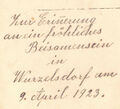 Zur Erinerung
an ein fröhliches
Beisamensein
in
Wurzelsdorf am
9. April 1923.